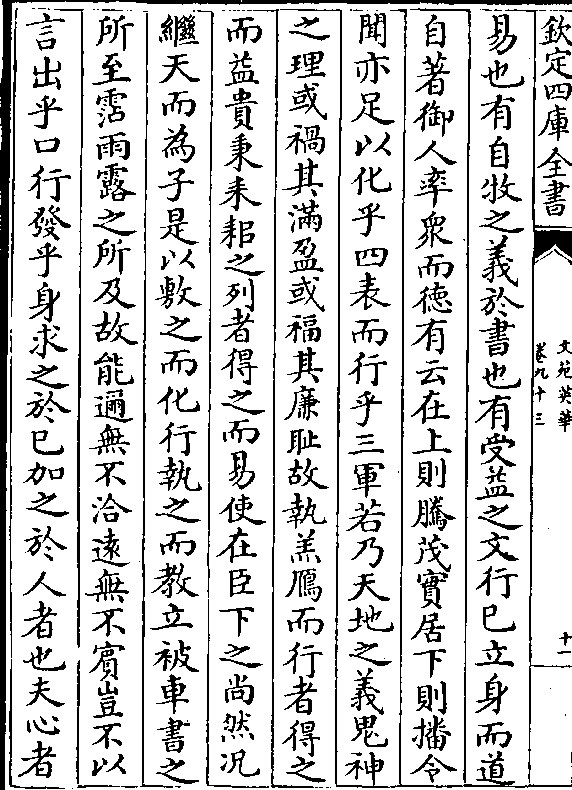 欽定四庫全書
文苑英華
卷九十三
十一
易也有自牧之義於書也有受益之文行已立身而道
自著御人率衆而德有云在上則騰茂實居下則播令
聞亦足以化乎四表而行乎三軍若乃天地之義鬼神
之理或禍其滿盈或福其廉耻故執羔鴈而行者得之
而益貴秉耒耜之列者得之而易使在臣下之尚然况
繼天而為子是以敷之而化行執之而教立被車書之
所至霑雨露之所及故能邇無不洽遠無不賓豈不以
言出乎口行發乎身求之於已加之於人者也夫心者